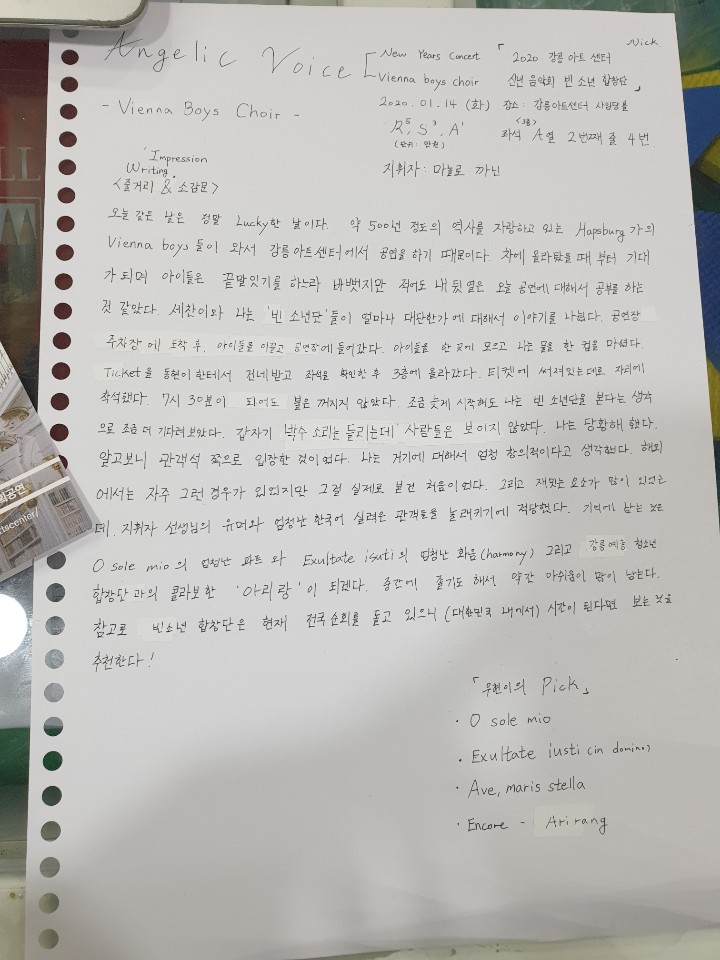 Nick
Angelic Voice
New Years Concert
Vienna boys choir
2020.01.14 (화)
R⁵, S³, A¹
(단위: 만원)
지휘자: 마놀로 까닌
「2020 강릉 아트 센터
신년 음악회 빈 소년 합창단」
장소: 강릉아트센터 사임당홀
<3층>
좌석 A열 2번째 줄 4번
- Vienna Boys Choir -
'Impression
Writing'
<줄거리 & 소감문>
오늘 같은 날은 정말 Lucky한 날이다. 약 500년 정도의 역사를 자랑하고 있는 Hapsburg 가의
Vienna boys 들이 와서 강릉아트센터에서 공연을 하기 때문이다. 차에 올라탔을 때 부터 기대
가 되며 아이들은 끝말잇기를 하느라 바빴지만 적어도 내 뒷 열은 오늘 공연에 대해서 공부를 하는
것 같았다. 세찬이와 나는 '빈 소년단'들이 얼마나 대단한가에 대해서 이야기를 나눴다. 공연장
주차장에 도착 후, 아이들을 이끌고 공연장에 들어갔다. 아이들을 한 곳에 모으고 나는 물을 한 컵을 마셨다.
Ticket을 동현이 한테서 건네받고 좌석을 확인한 후 3층에 올라갔다. 티켓에 써져있는대로 자리에
착석했다. 7시 30분이 되어도 불은 꺼지지 않았다. 조금 늦게 시작해도 나는 빈 소년단을 본다는 생각
으로 조금 더 기다려보았다. 갑자기 박수 소리는 들리는데 사람들은 보이지 않았다. 나는 당황해 했다.
알고보니 관객석 쪽으로 입장한 것이었다. 나는 거기에 대해서 엄청 창의적이다고 생각했다. 해외
에서는 자주 그런 경우가 있었지만 그걸 실제로 본건 처음이었다. 그리고 재밌는 요소가 많이 있었는
데, 지휘자 선생님의 유머와 엄청난 한국어 실력은 관객들을 놀래키기에 적당했다. 기억에 남는 것은
O sole mio의 엄청난 파트 와 Exultate isuti의 엄청난 화음(harmony) 그리고 강릉예총 청소년
합창단과의 콜라보한 '아리랑'이 되겠다. 중간에 졸기도 해서 약간 아쉬움이 많이 남는다.
참고로 빈소년 합창단은 현재 전국순회를 돌고 있으니 (대한민국 내에서) 시간이 된다면 보는 것을
추천한다!
「무현이의 Pick」
· O sole mio
· Exultate iusti (in domino)
· Ave, maris stella
· Encore - Arirang